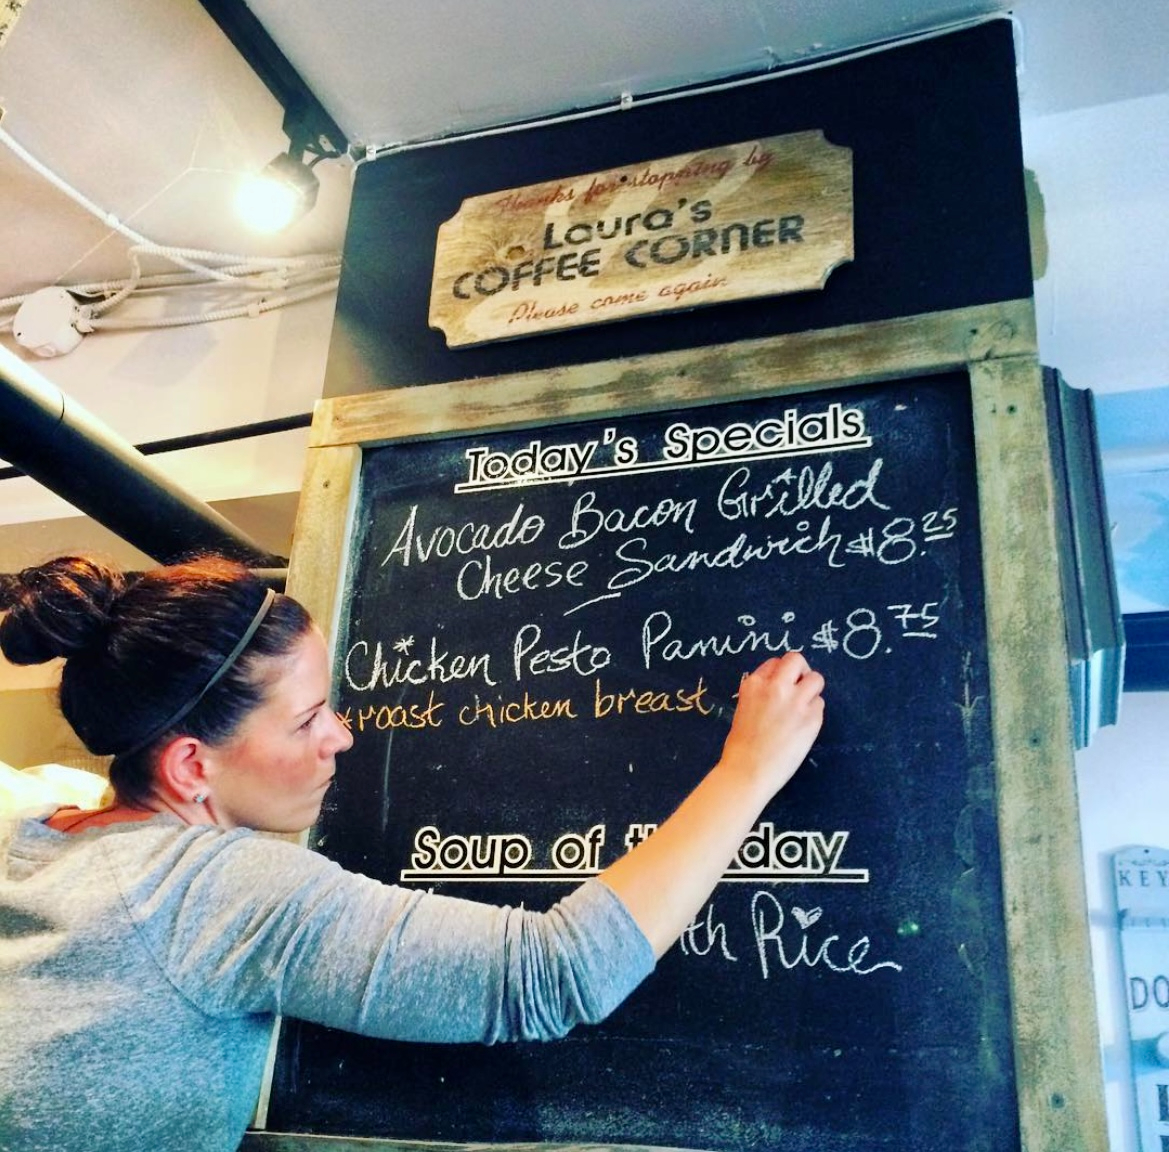 Thanks for stopping by
Laura's
COFFEE CORNER
Please come again
Today's Specials
Avocado Bacon Grilled
Cheese Sandwich $8.25
Chicken Pesto Panini $8.75
*roast chicken breast,
Soup of day
Rice
KEY
DO